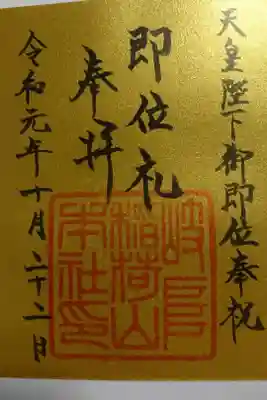 天皇陛下御即位奉祝
即位礼
奉拝
令和元年十月二十二日
岐阜
稲荷山
本社印